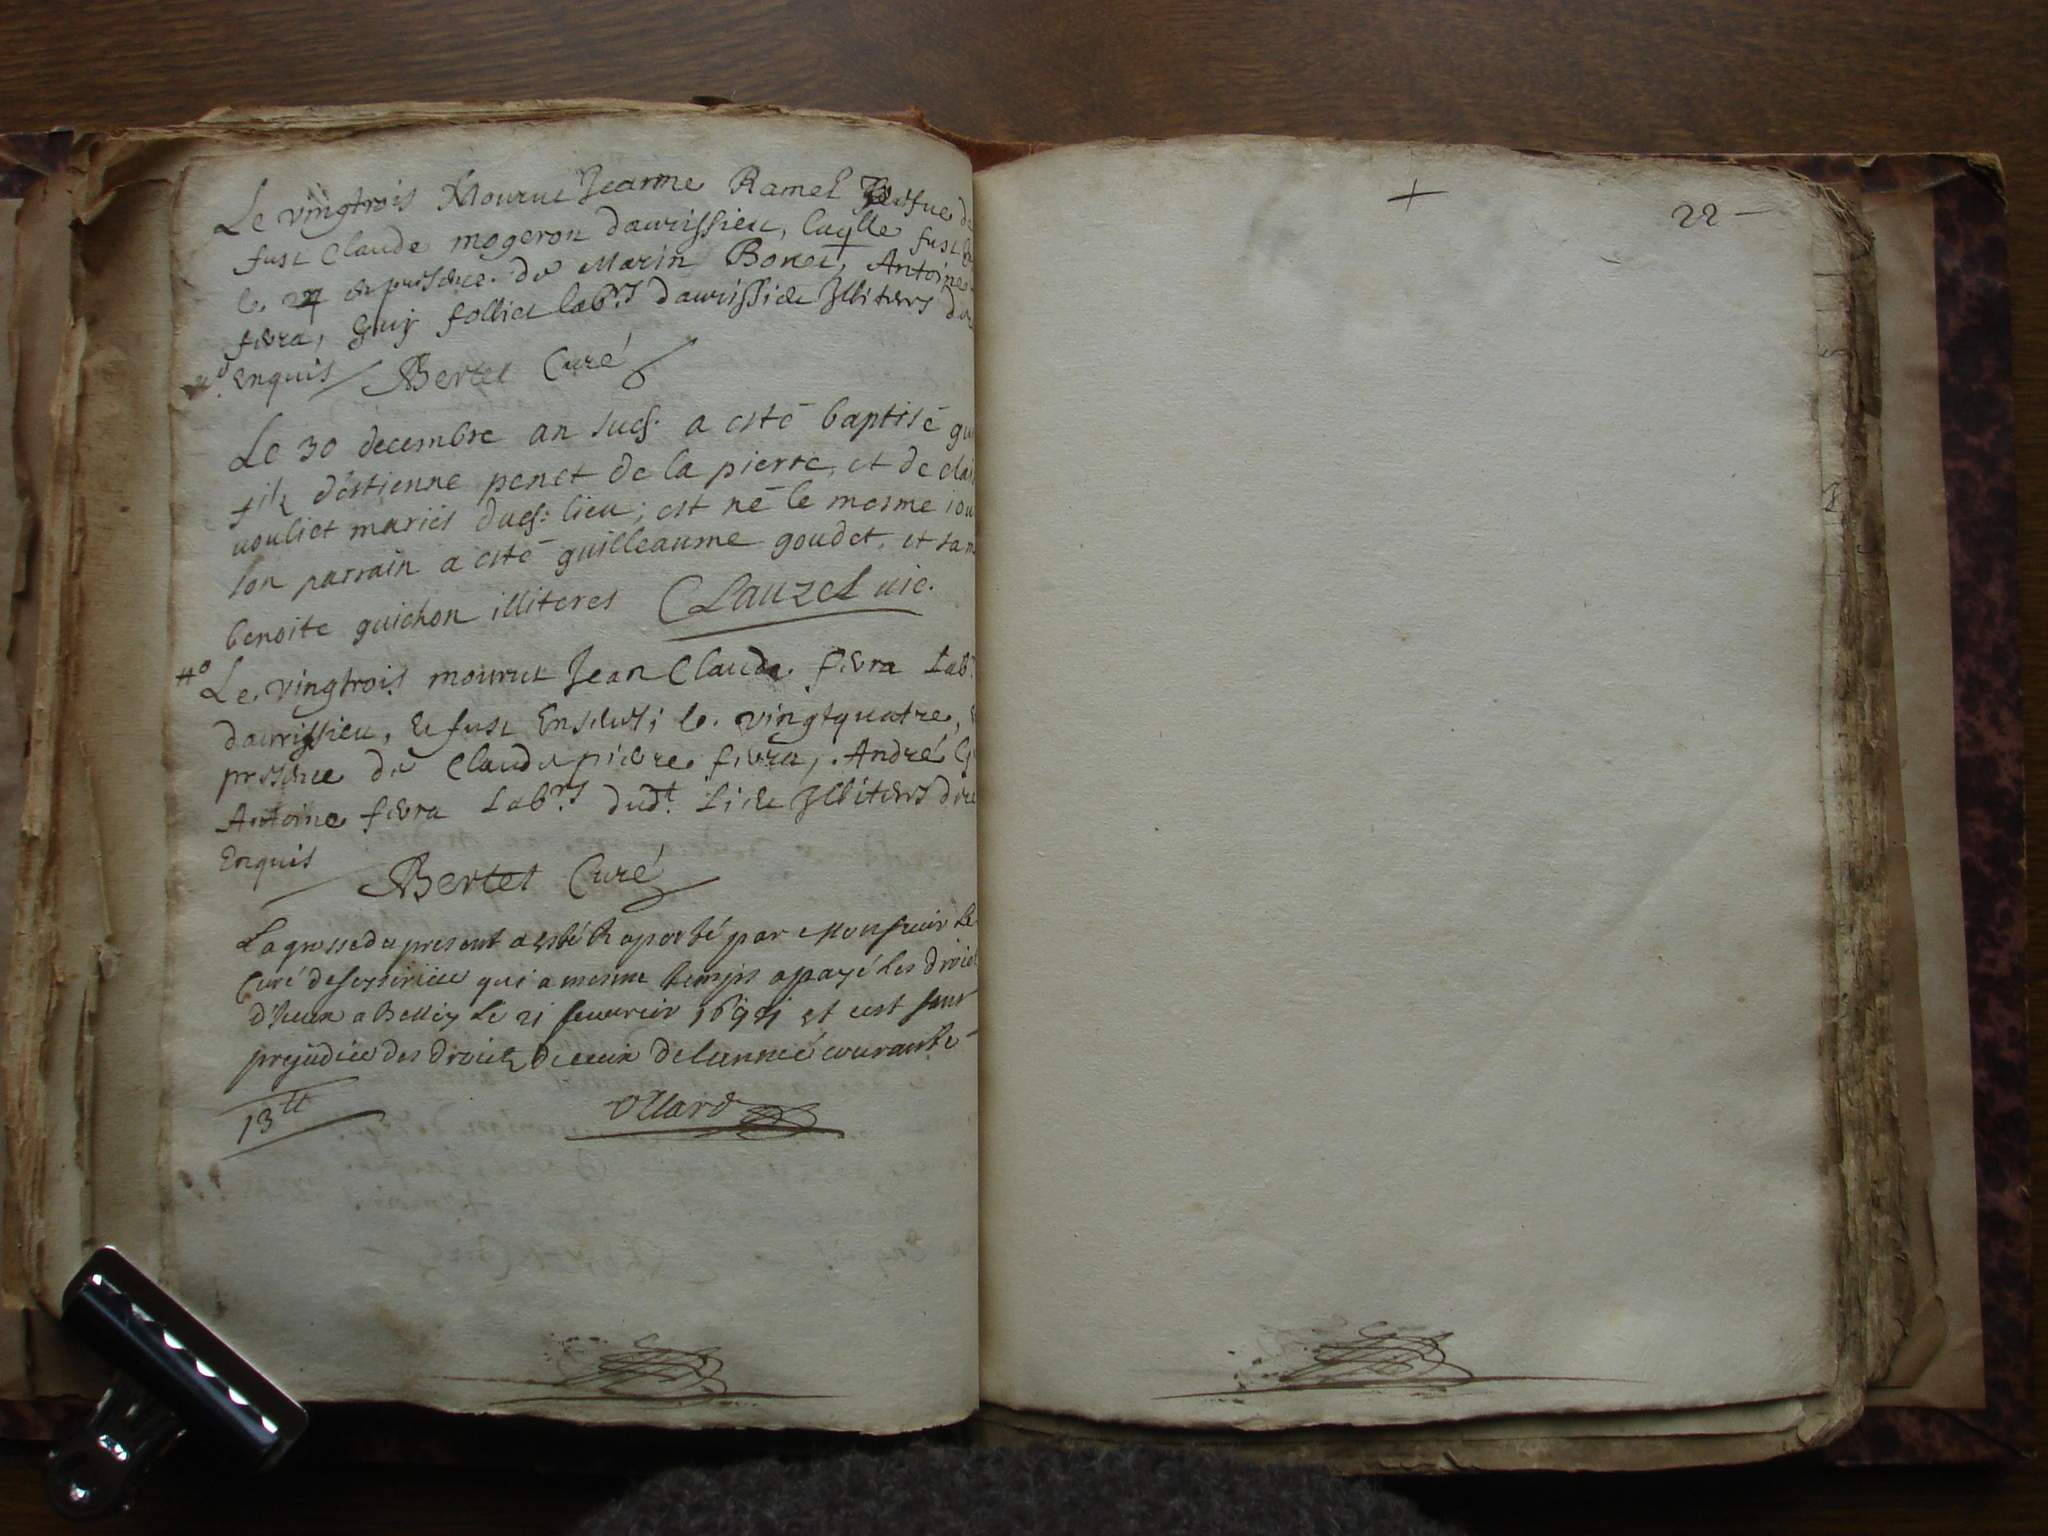 Le vingtrois Mourut Jeanne Ramel Vefue de
fust Claude mogeron daurissieu, laqlle fust
le 24 en presence de Marin Bonet, Antoine
fivra, Guy folliet labrs daurissieu Illiters
Enquis Bertet Curé
Le 30 decembre an sud. a esté baptisé
filz destienne penet de la pierre, et de
uouliet mariés dud. lieu; est né le mesme
son parrain a esté guilleaume goudet, et sa
benoite guichon illiteres Clauzel uic.
Le vingtrois mourut Jean Claude fivra Labr
daurissieu, & fust Enseveli le vingtquatre,
presence de Claude pierre fivra, André
Antoine fivra Labrs dudt. Lieu Illiters
Enquis
Bertet Curé
La grosse du present a esté Raporté par Monsieur Le
Curé de qui a mesme temps a payé les droict
d'Iceux a Belley Le 21 feuurier et cest sans
prejudice des droictz de ceux de lannée courante
13tt
ollard
+
22